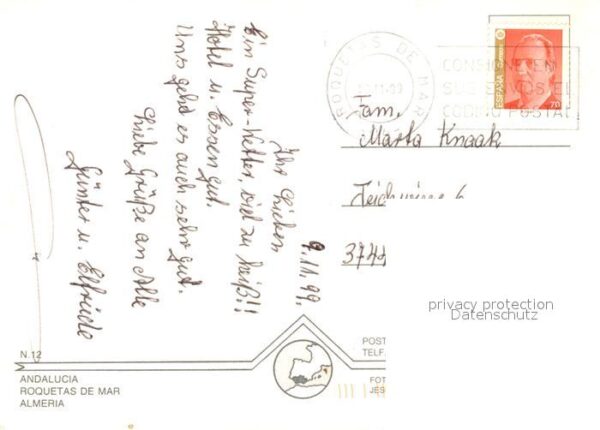 9.11.99.
Ihr Lieben
Ein Super-Wetter, viel zu heiß!!
Hotel u. Essen gut.
Uns geht es auch sehr gut.
Liebe Grüße an Alle
Günter u. Elfriede
ROQUETAS DE MAR
11-99
CONSIGNE EN
SUS ENVIOS EL
CODIGO POSTAL
ESPAÑA
70
Fam.
Marta Knaak
374
privacy protection
Datenschutz
N.12
ANDALUCIA
ROQUETAS DE MAR
ALMERIA
POST
TELF.
FOT
JES